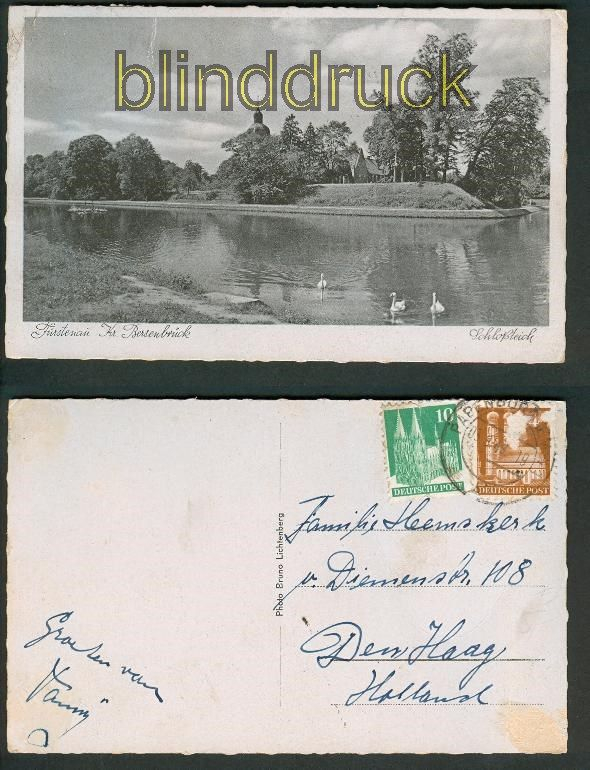 blinddruck
Fürstenau Kr. Bersenbrück
Schloßteich
10
DEUTSCHE POST
DEUTSCHE POST
Photo Bruno Lichtenberg
Familie Heemskerk
v. Diemenstr. 108
Den Haag
Holland
Groeten van